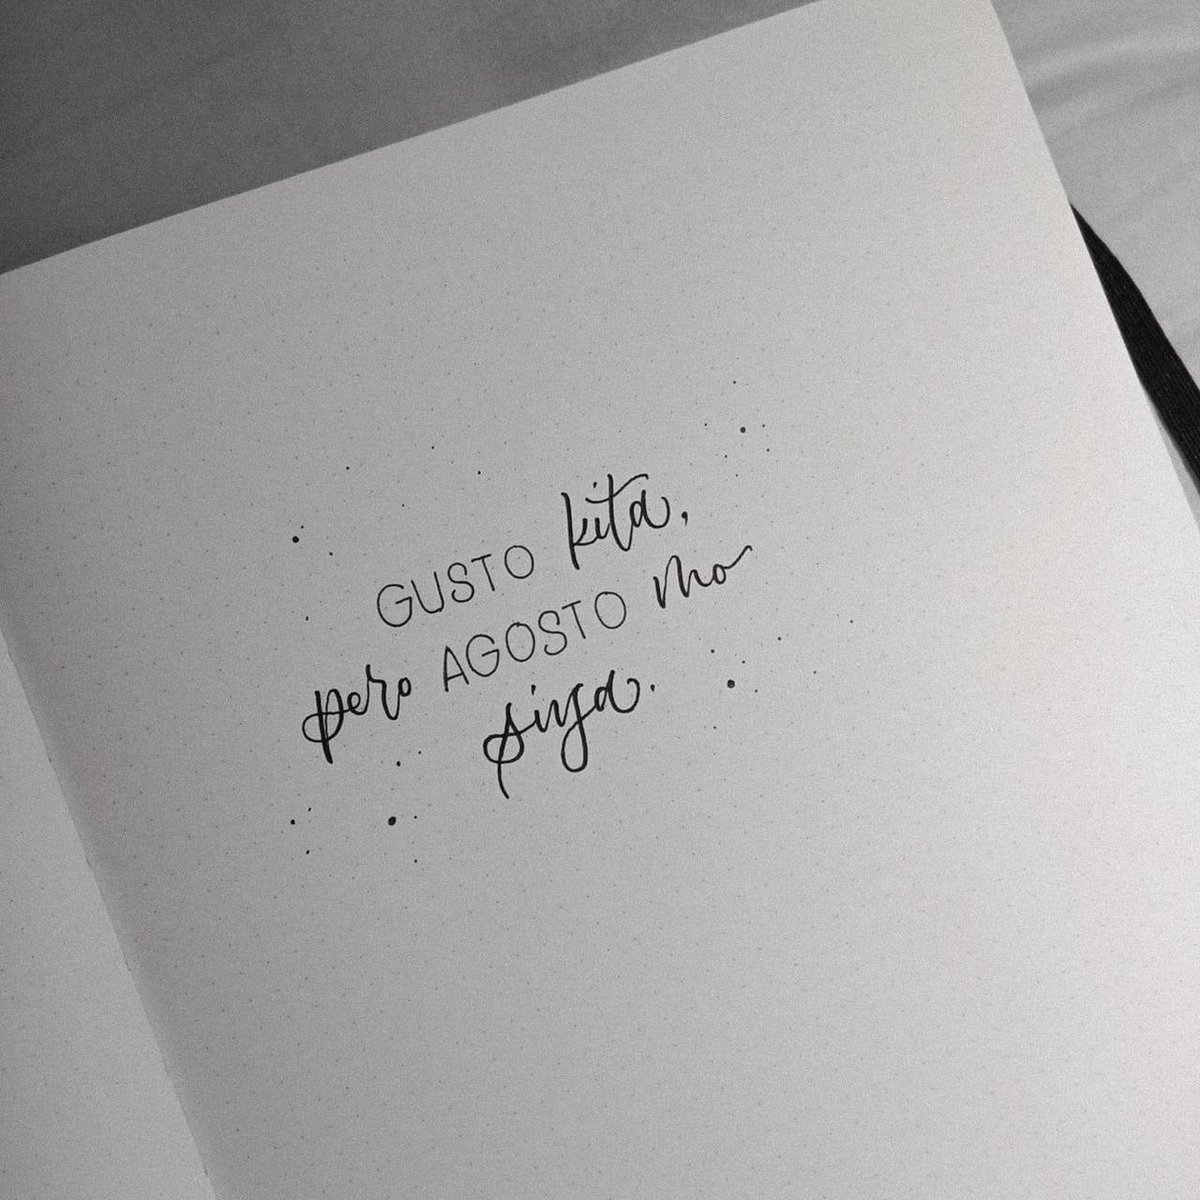 GUSTO kita,
pero AGOSTO mo
siya.